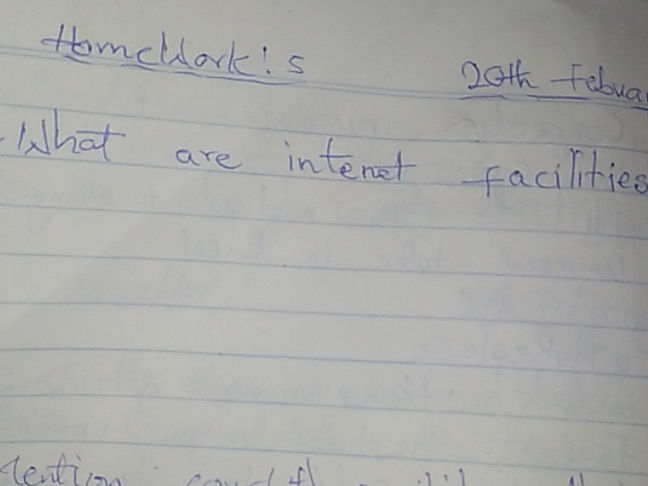 HomeWork: s
20th Febua
What are intenet facilities